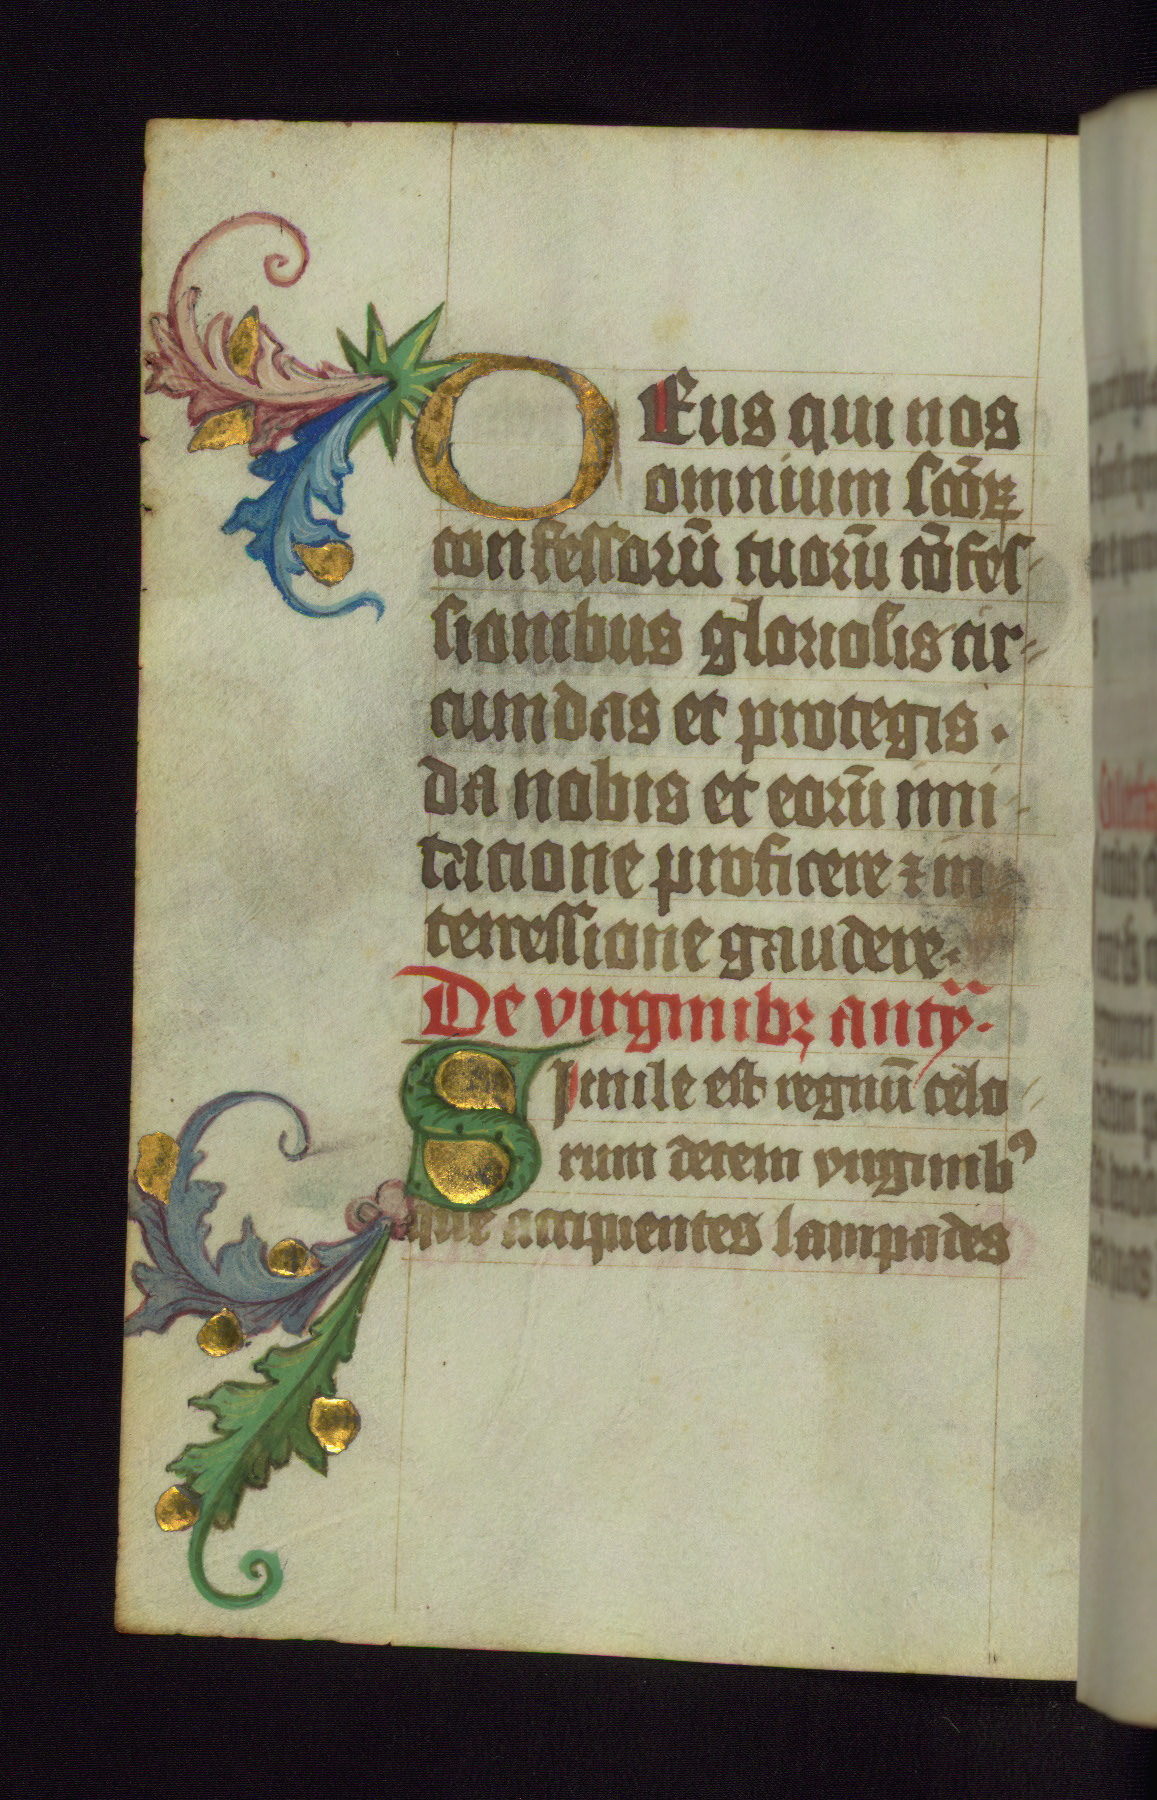 DEus qui nos
omnium scōꝝ
confessorū tuorū cōfes
sionibus gloriosis cir-
cumdas et protegis .
da nobis et eorū imi-
tacione proficere ⁊ in
tercessione gaudere.
De virginibꝫ anty̎.
Simile est regnū celo
rum decem virginibꝰ
que accipientes lampades